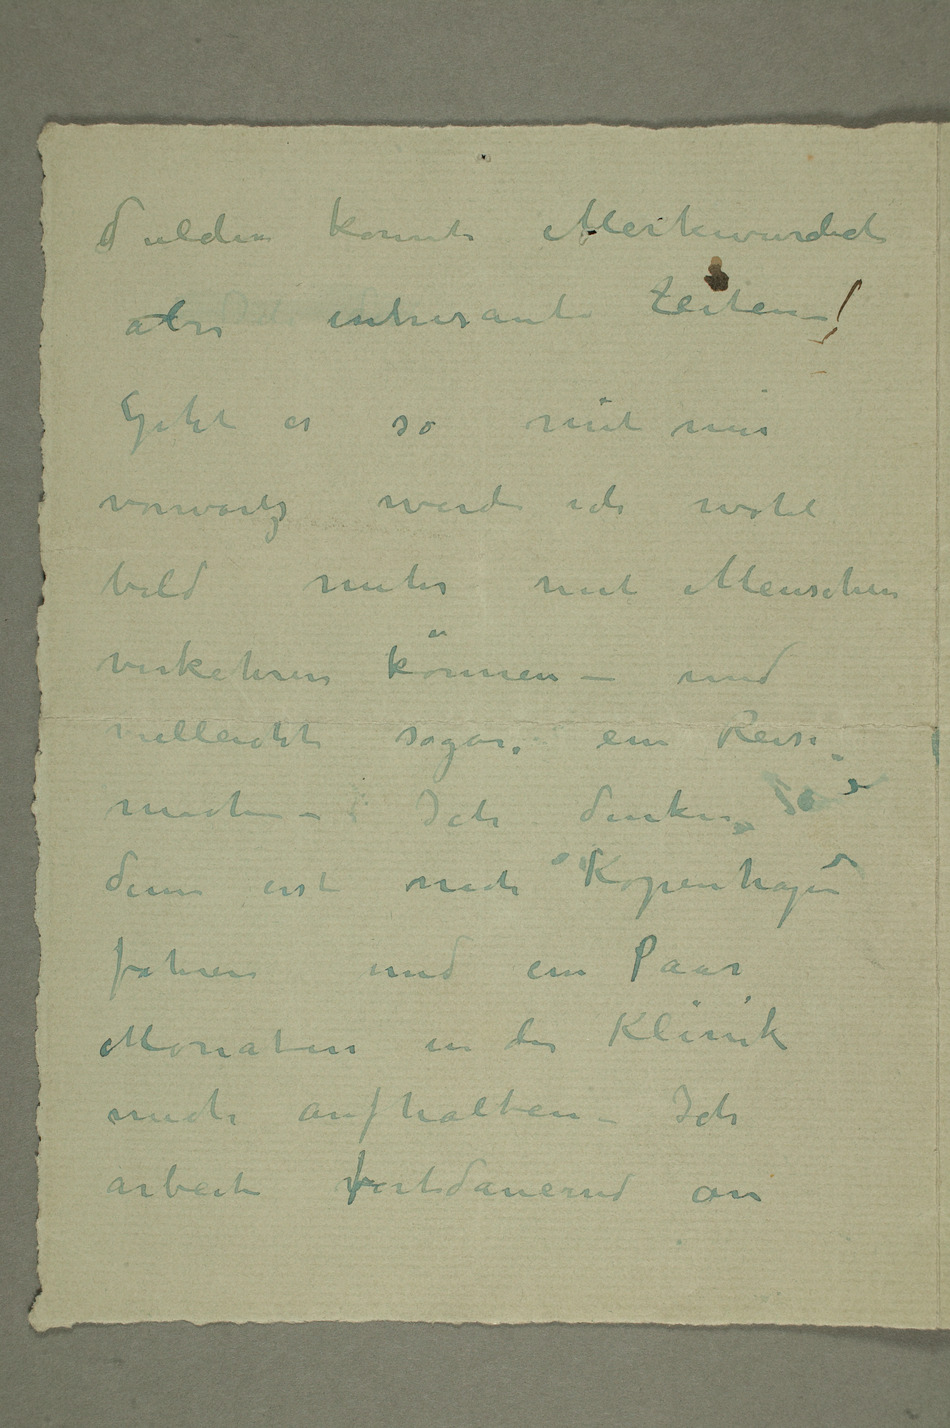 dulden konnte Merkwurdich
aber intresante Zeiten!
Geht es so mit mir
vorwärtz werde ich wohl
bald mehr mit Menschen
verkehren können – und
vielleicht sogar ein Reise
machen – Ich denke
dann erst nach Kopenhagen
fahren und ein Paar
Monaten in der Klinik
mich aufhalten – Ich
arbeite fortdauernd an